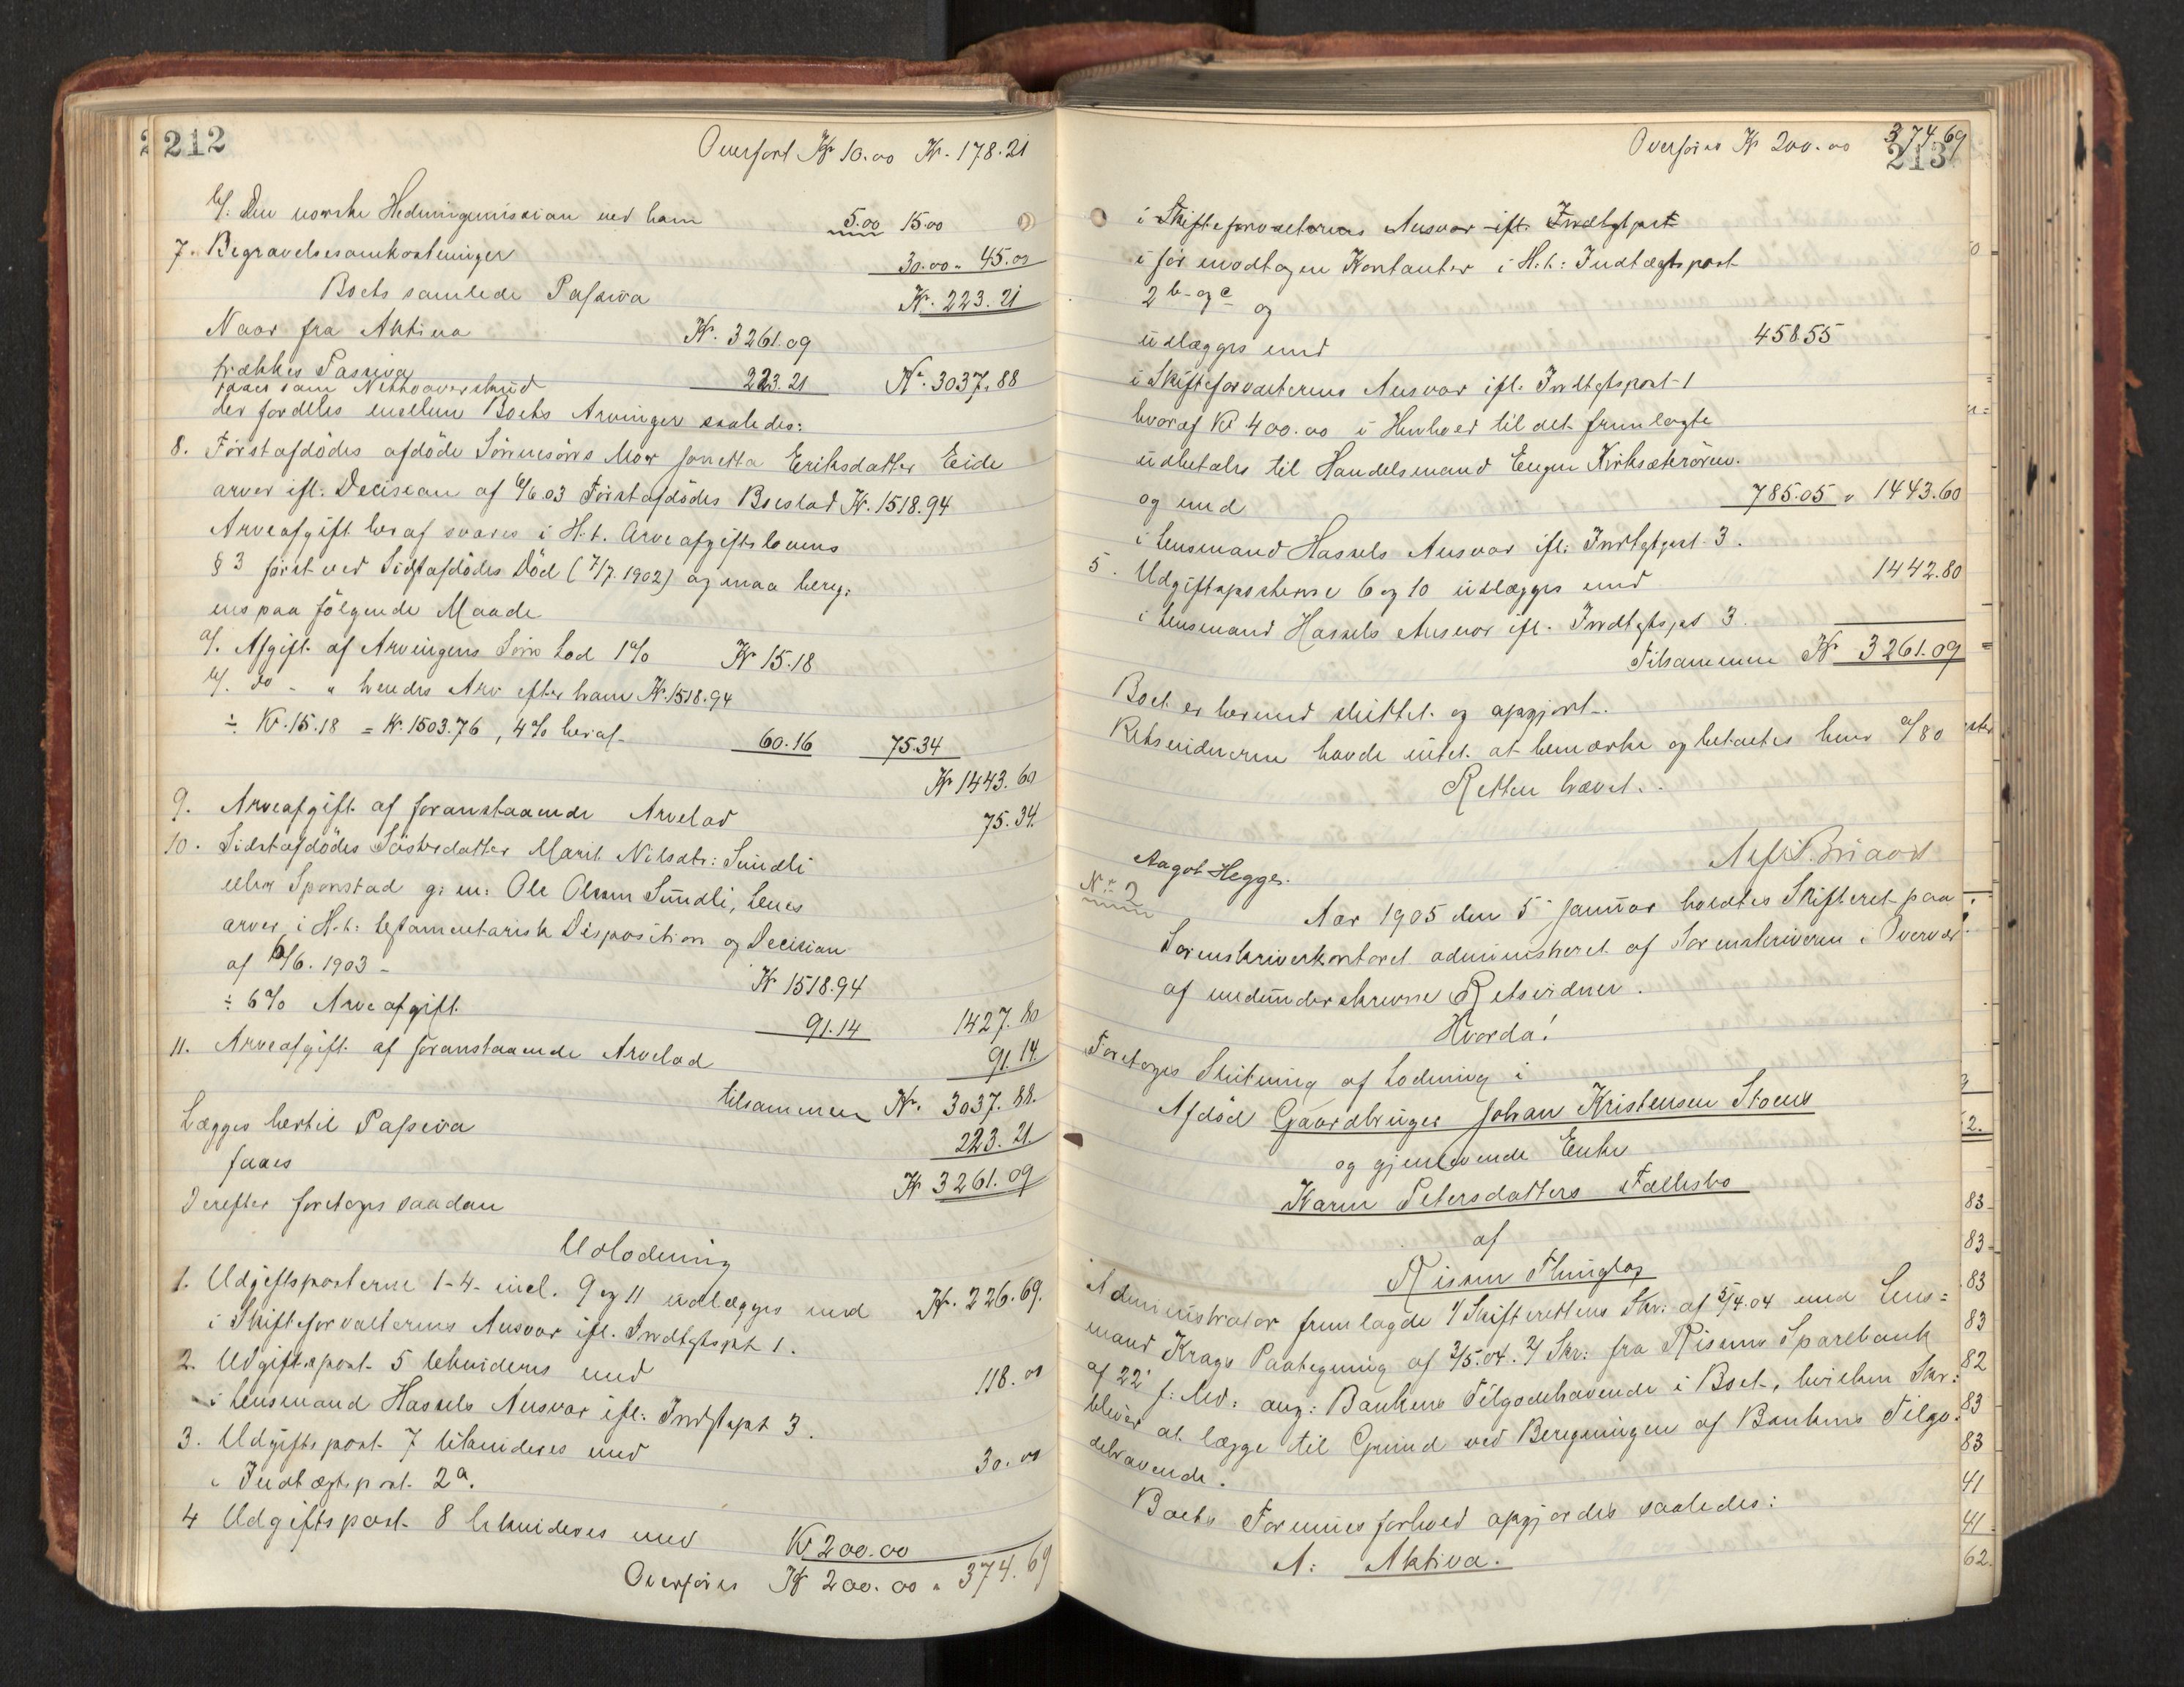 212
Overført Kr 10.00 Kr. 178.21
b/. Den norske Hedningemission ved ham 5.00 15.00
7. Begravelsesomkostninger 30.00 " 45.00
Boets samlede Passiva Kr. 223.21
Naar fra Aktiva Kr. 3261.09
trækkes Passiva 223.21 Kr. 3037.88
faaes som Nettooverskud
der fordeles mellem Boets Arvinger saaledes:
8. Førstafdødes afdøde Sønnesøns Mor Jonetta Eriksdatter Eide
arver ifl. Decision af 6/6.03 Førstafdødes Boeslod Kr. 1518.94
Arveafgift heraf svares i H.t. Arveafgiftslovens
§ 3 først ved Sidstafdødes Død (7/7.1902) og maa bereg:
nes paa følgende Maade
a/. Afgift af Arvingens Søns Lod 1% Kr 15.18
b/. do - " hendes Arv efter ham Kr. 1518.94
÷ Kr. 15.18 = Kr. 1503.76, 4% heraf 60.16 75.34
Kr 1443.60
9. Arveafgift af foranstaaende Arvelod 75.34
10. Sidstafdødes Søsterdatter Marit Nilsdtr: Sundli
eller Sponstad g: m: Ole Olsen Sundli,
arver i H.t: testamentarisk Disposition og Decision
af 6/6. 1903 - Kr 1518.94
÷ 6% Arveafgift 91.14 1427.80
11. Arveafgift af foranstaaende Arvelod 91.14
tilsammen Kr. 3037.88.
Lægges hertil Passiva 223.21
faaes Kr 3261.09
Derefter foretages saadan
Udlodning
1. Udgiftsposterne 1-4- incl. 9 og 11 udlægges med Kr. 226.69.
i Skifteforvalterens Ansvar ifl. Indtgtspst 1.
2. Udgiftspost 5 likvideres med 118.00
i Lensmand Hassels Ansvar ifl: Indtgtspst 3.
3. Udgiftspost 7 likvideres med 30.00
i Indtægtspost 2a.
4 Udgiftspost 8 likvideres med Kr 200.00
Overføres Kr 200.00 " 374.69
213
Overføres Kr 200.00 374.69
i Skifteforvalterens Ansvar ifl. Indtgtpst
i før modtagen Kontanter i H.t: Indtægtspost
2 b- og c og
udlægges med 458.55
i Skifteforvalterens Ansvar ifl. Indtgtspost 1
hvoraf Kr 400.00 i Henhold til det fremlagte
udbetales til Handelsmand Eugen Kirksæterøren.
og med 785.05 " 1443.60
i Lensmand Hassels Ansvar ifl: Indtgtpost 3.
5. Udgiftsposterne 6 og 10 udlægges med 1442.80
i Lensmand Hassels Ansvar ifl. Indtgtspst 3.
Tilsammen Kr 3261.09
Boet er hermed sluttet og opgjort.
Retsvidnerne havde intet at bemærke og betaltes hver a/80
Retten hævet.
Aagot Hegge.
No 2
Aar 1905 den 5 Januar holdtes Skifteret paa
Sorenskriverkontoret administreret af Sorenskriveren i Overvær
af medunderskrevne Retsvidner.
Hvorda!
Foretoges Slutning af Lodning i
Afdød Gaardbruger Johan Kristensen Stoens
og gjenlevende Enke
Karen Petersdatters Fællesbo
af
Risen Thinglag
Administrator fremlagde 1/ Skifterettens Skr: af 5/4.04 med Lens=
mand Krags Paategning af 3/5.04. 2/ Skr: fra Risens Sparebank
af 22' f: Md: ang: Bankens Tilgodehavende i Boet, hvilken Skr:
bliver at lægge til Grund ved Beregningen af Bankens Tilgo:
dehavende.
Boets Formuesforhold opgjordes saaledes:
A: Aktiva.